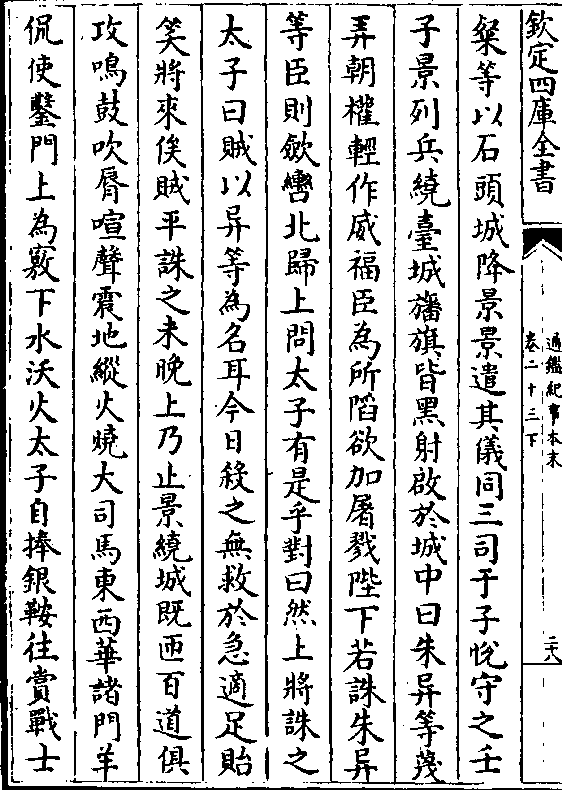 欽定四庫全書
通鑑紀事本末
卷二十三下
二十八
粲等以石頭城降景景遣其儀同三司于子悅守之壬
子景列兵繞臺城旛旗皆黑射啟於城中曰朱异等蔑
弄朝權輕作威福臣為所䧟欲加屠戮陛下若誅朱异
等臣則斂轡北歸上問太子有是乎對曰然上將誅之
太子曰賊以异等為名耳今日殺之無救於急適足貽
笑將來俟賊平誅之未晚上乃止景繞城既匝百道俱
攻鳴鼓吹脣喧聲震地縱火燒大司馬東西華諸門羊
侃使鑿門上為竅下水沃火太子自捧銀鞍往賞戰士